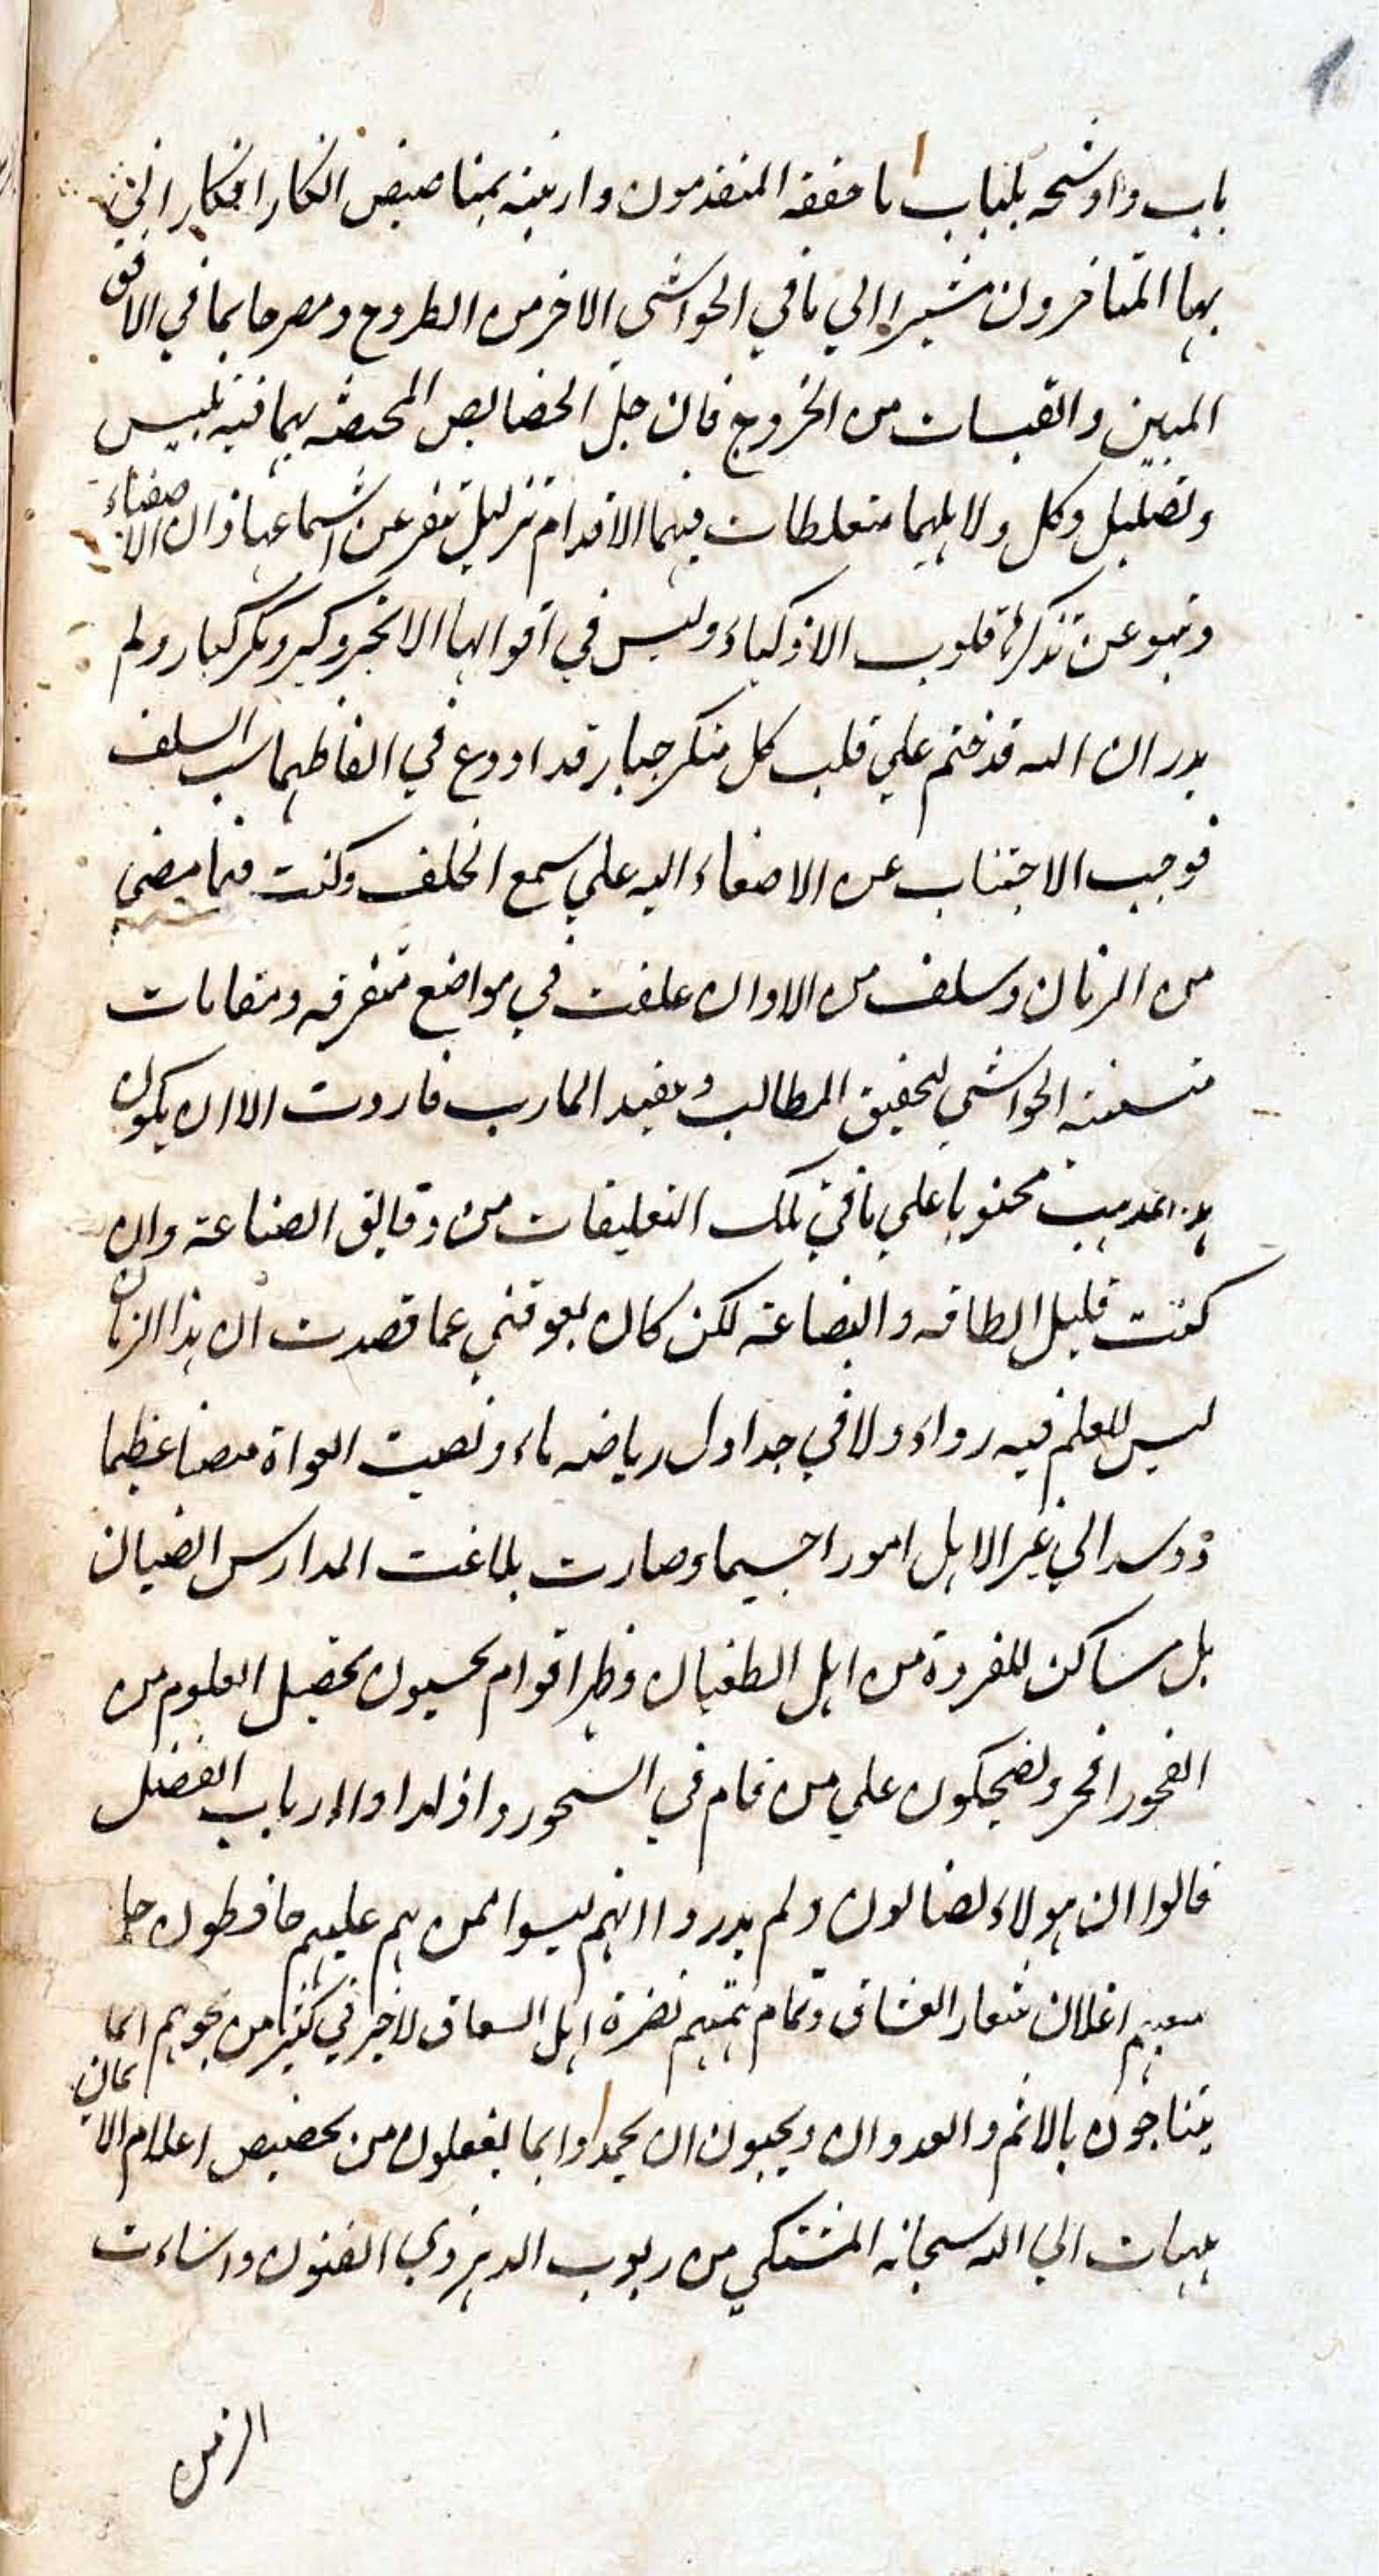 باب واوشحه بلباب ما حققه المتقدمون وازينه بمناصيص ابكار افكار اتي
بها المتاخرون مشيرا الي ما في الحواشي الاخر من الطروح ومصرحا بما في الافق
المبين والقبسات من الخروج فان جل الخصايص المختصه بهما فيه تلبيس
وتضليل وكل دلايلهما متغلطات فيهما الاقدام تزليل تنفر عن استماعها اذان الاصفياء
وتنبو عن تذكرة قلوب الاذكياء وليس في اقوالها الا تجبر وكبر ومكر كبار ولم
يدر ان الله قد ختم علي قلب كل متكبر جبار قد اودع في الفاظهما سب السلف
فوجب الاجتناب عن الاصغاء اليه علي سمع الخلف وكنت فيما مضي
من الزمان وسلف من الاوان علقت في مواضع متفرقه ومقامات
متسعته الحواشي لتحقيق المطالب وتقييد المارب فاردت الا ان يكون
محتويا علي ما في تلك التعليقات من دقايق الصناعة وان
كنت قليل الطاقه والبضاعة لكن كان يعوقني عما قصدت ان هذا الزمان
ليس للعلم فيه رواء ولا في جداول رياضه ماء ونصبت الغواة منصبا عظيما
ووسد الي غير الاهل امورا جسيما وصارت المدارس الصبيان
بل مساكن للقردة من اهل الطغيان وظهر اقوام يحسبون تحصيل العلوم من
الفجور افجر ويضحكون علي من قام في السحور واذا راوا ارباب الفضل
قالوا ان هولاء لضالون ولم يدروا انهم ليسوا ممن هم عليهم حافظون جل
سعيهم اعلان شعار الفساق وتمام همتهم نصرة اهل النفاق لا خير في كثير من نجويهم انما
يتناجون بالاثم والعدوان ويحبون ان يحمدوا بما يفعلون من تخصيص اعلام الايمان
هيهات الي الله سبحانه المشتكي من ريوب الدهر ذوي الفنون واساءت
الزمن